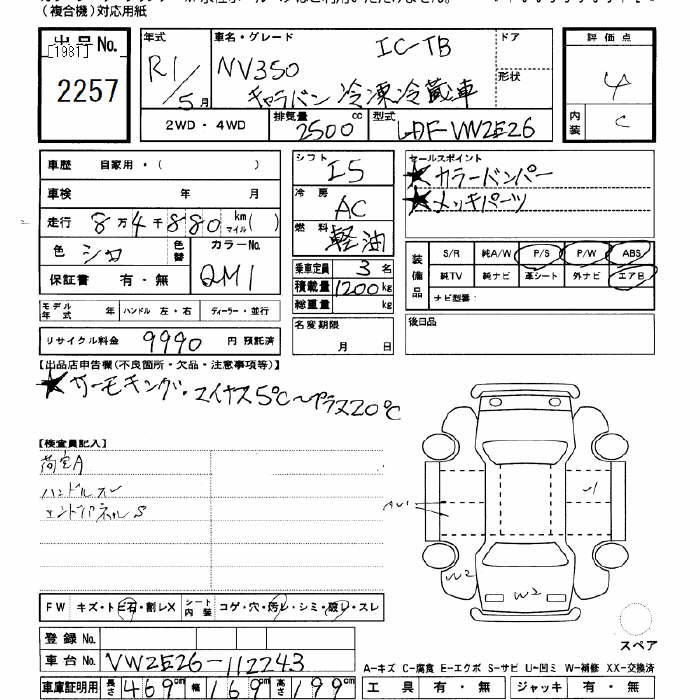 （複合機）対応用紙
出品No.
[1981]
2257
年式
R1/5月
車名・グレード
IC-TB
NV350
キャラバン 冷凍冷蔵車
ドア
形状
2WD・4WD
排気量
2500cc
型式
LDF-VW2E26
評価点
4
内装
C
車歴 自家用・( )
車検 年 月
走行 8万4千880 km マイル( )
色 シロ
色替
カラーNo.
QM1
保証書 有・無
モデル年式 年
ハンドル 左・右
ディーラー・並行
リサイクル料金 9990 円 預託済
シフト I5
冷房 AC
燃料 軽油
乗車定員 3名
積載量 1200kg
総重量 kg
名変期限
月 日
セールスポイント
★カラードバンパー
★メッキパーツ
装備品
S/R 純A/W P/S P/W ABS
純TV 純ナビ 革シート 外ナビ エアB
ナビ型番：
後日品
【出品店申告欄（不良箇所・欠品・注意事項等）】
★サーモキング・マイナス5℃〜プラス20℃
【検査員記入】
荷室A
ハンドルスレ
エンドパネルS
AU1
W2
W2
FW キズ・トビ石・割レX
シート内装 コゲ・穴・汚レ・シミ・破レ・スレ
スペア
登録No.
車台No. VW2E26-112243
車庫証明用 長さ469cm 幅169cm 高さ199cm
A-キズ C-腐食 E-エクボ S-サビ U-凹ミ W-補修 XX-交換済
工具 有・無 ジャッキ 有・無